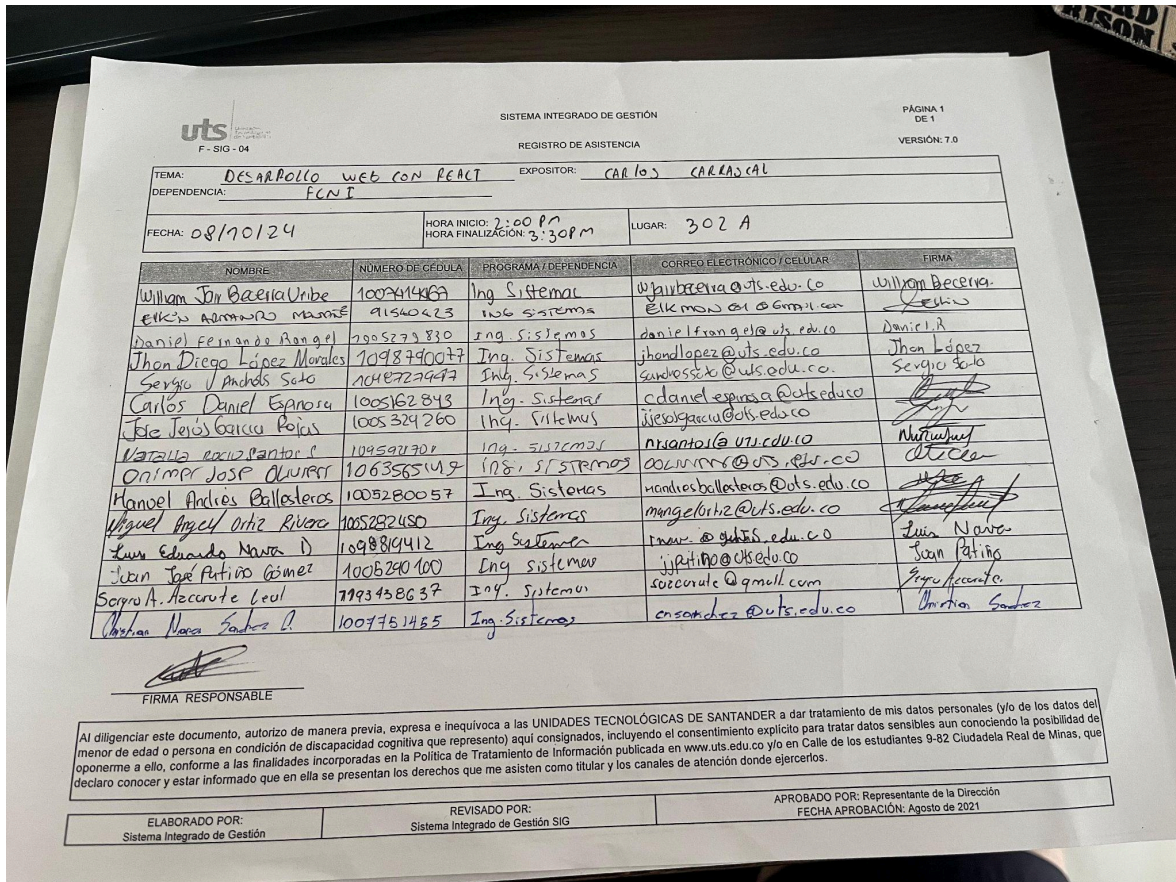 RISON
SISTEMA INTEGRADO DE GESTIÓN
PÁGINA 1
DE 1
uts
F - SIG - 04
REGISTRO DE ASISTENCIA
VERSIÓN: 7.0
TEMA: DESARROLLO WEB CON REACT EXPOSITOR: CARlos CARRASCAL
DEPENDENCIA: FCNI
FECHA: 08/10/24
HORA INICIO: 2:00 Pm
HORA FINALIZACIÓN: 3:30Pm
LUGAR: 302 A
NOMBRE NÚMERO DE CÉDULA PROGRAMA / DEPENDENCIA CORREO ELECTRÓNICO / CELULAR FIRMA
William Jair Becerra Uribe Ing Sistemas wjairbecerra@uts.edu.co William Becerra.
ARMANDO 91540423 ING SISTEMS
Daniel Fernando Rangel 1005279830 Ing. Sistemas danielfrangel@uts.edu.co Daniel.R
Jhon Diego López Morales 1098790077 Ing. Sistemas jhondlopez@uts.edu.co Jhon López
Sergio Andrés Soto Ing. Sistemas Sergio Soto
Carlos Daniel Espinosa 1005162843 Ing. Sistemas cdaniel.espinosa@uts.edu.co
Jose Jesús Garcia Rojas 1005324260 Ing. Sistemas
Natalia Rocio Santos S Ing. Sistemas nrsantos@uts.edu.co
Onimer Jose ing. sistemos
Manoel Andrés Ballesteros 1005280057 Ing. Sistemas mandresballesteros@uts.edu.co
Miguel Angel Ortiz Rivera 1005282450 Ing. Sistemas mangelortiz@uts.edu.co
Luis Eduardo Nava D 1098819412 Ing Sistemas Luis Nava
Juan José Patiño Gómez 1005290100 Ing sistemas jjpatiño@uts.edu.co Juan Patiño
Sergio A. Azcarate Leal Ing. Sistemas sazcarate@gmail.com Sergio Azcarate.
Christian Sanchez 1007751455 Ing. Sistemas cnsanchez@uts.edu.co Christian Sanchez
FIRMA RESPONSABLE
Al diligenciar este documento, autorizo de manera previa, expresa e inequívoca a las UNIDADES TECNOLÓGICAS DE SANTANDER a dar tratamiento de mis datos personales (y/o de los datos del
menor de edad o persona en condición de discapacidad cognitiva que represento) aquí consignados, incluyendo el consentimiento explícito para tratar datos sensibles aun conociendo la posibilidad de
oponerme a ello, conforme a las finalidades incorporadas en la Política de Tratamiento de Información publicada en www.uts.edu.co y/o en Calle de los estudiantes 9-82 Ciudadela Real de Minas, que
declaro conocer y estar informado que en ella se presentan los derechos que me asisten como titular y los canales de atención donde ejercerlos.
ELABORADO POR:
Sistema Integrado de Gestión
REVISADO POR:
Sistema Integrado de Gestión SIG
APROBADO POR: Representante de la Dirección
FECHA APROBACIÓN: Agosto de 2021